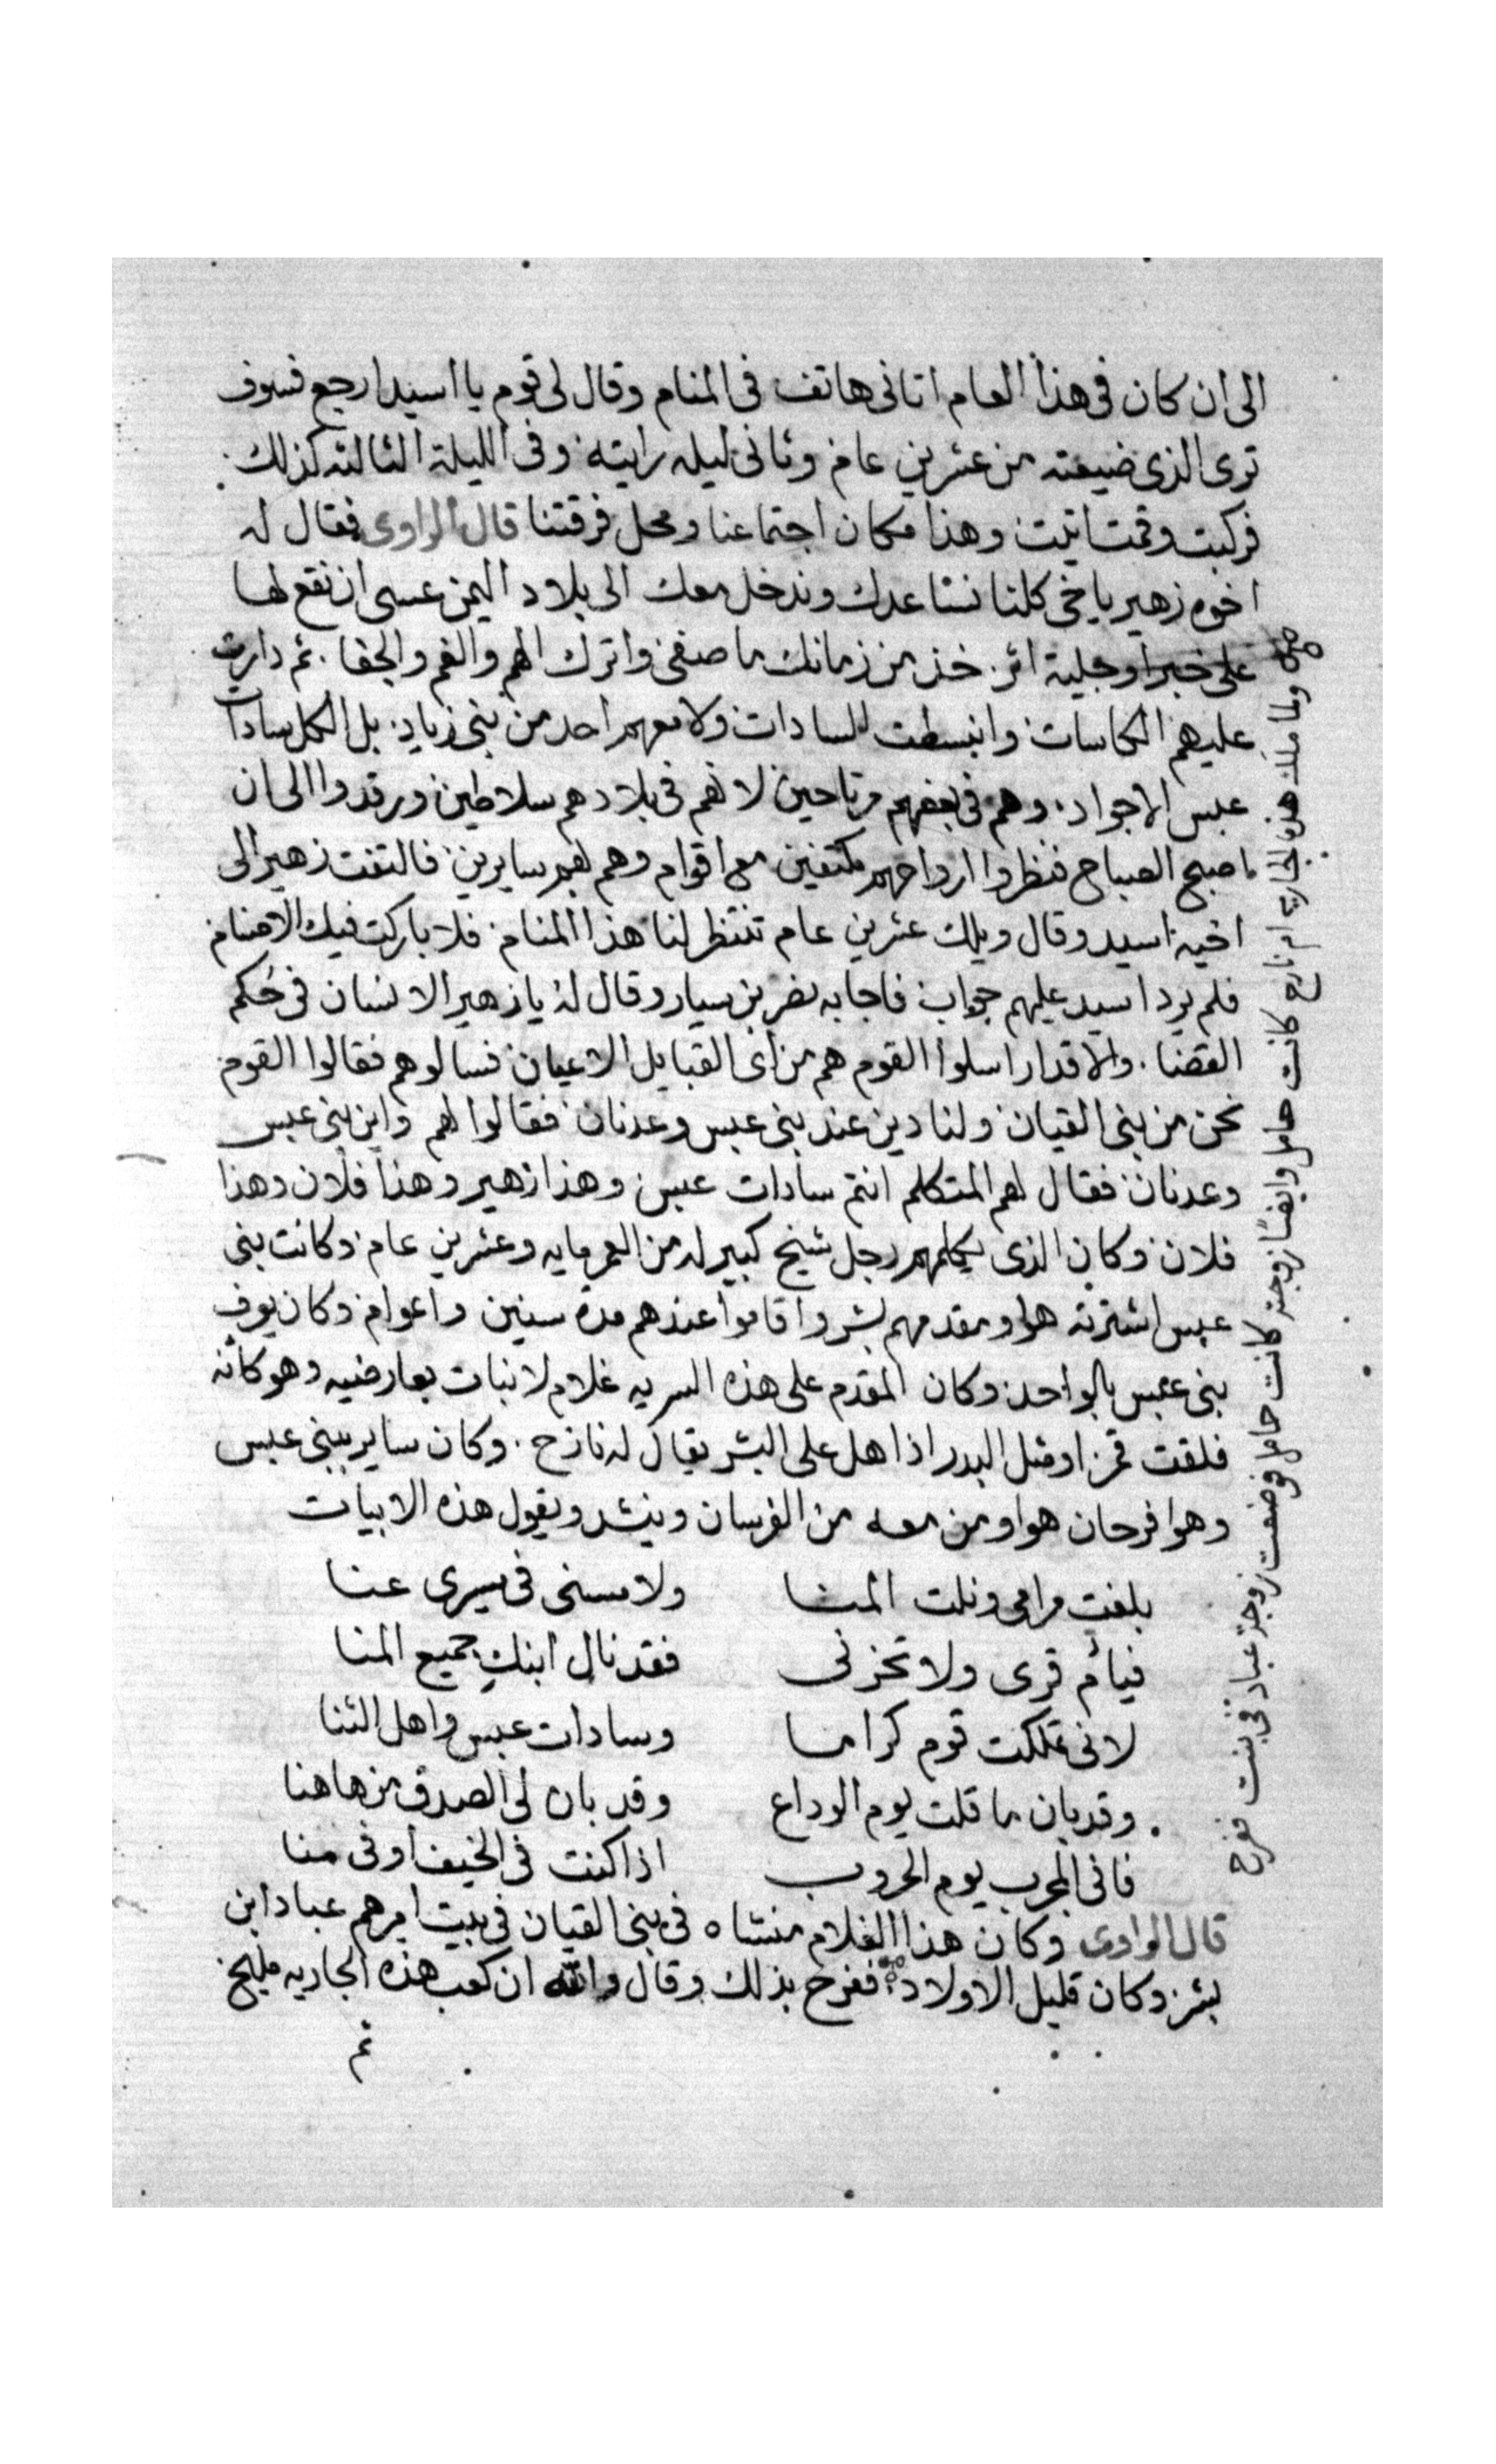 الى ان كان فى هذا العام اتانى هاتف فى المنام وقال لى قوم يا اسيد ارجع فسوف
ترى الذى ضيعته من عشرين عام وثانى ليله رايته وفى الليلة الثالثه كذلك
فركبت وقمت اتيت وهذا مكان اجتماعنا ومحل فرقتنا قال الراوى فقال له
اخوه زهير ياخى كلنا نساعدك وندخل معك الى بلاد اليمن عسى ان نقع لها
على خبر او جلية اثر خذ من زمانك ما صفى واترك الهم والغم والجفا ثم دارت
عليهم الكاسات وانبسطت السادات ولا معهم احد من بنى زياد بل الكل سادات
عبس الاجواد وهم فى بعضهم مرتاحين لانهم فى بلادهم سلاطين ورقدوا الى ان
اصبح الصباح فنظروا ارواحهم مكتفين مع اقوام وهم بهم سايرين فالتفت زهير الى
اخيه اسيد وقال ويلك عشرين عام تنتظر لنا هذا المنام فلا باركت فيك الاصنام
فلم يرد اسيد عليهم جواب فاجابه نضر بن سيار وقال له يا زهير الانسان فى حكم
القضا والاقدار اسلوا القوم هم من اى القبايل الاعيان فسالوهم فقالوا القوم
نحن من بنى القيان ولنا دين عند بنى عبس وعدنان فقالوا لهم واين بنى عبس
وعدنان فقال لهم المتكلم انتم سادات عبس وهذا زهير وهذا فلان وهذا
فلان وكان الذى يكلمهم رجل شيخ كبير له من العمر مايه وعشرين عام وكانت بنى
عبس اشترته هو ومقدمهم بشر واقاموا عندهم مدة سنين واعوام وكان يعرف
بنى عبس بالواحد وكان المقدم على هذه السريه غلام لا نبات بعارضيه وهو كانه
فلقت قمر او مثل البدر اذا هل على البشر يقال له نازح وكان ساير ببنى عبس
وهوا فرحان هوا ومن معه من الفرسان وينشد ويقول هذه الابيات
بلغت مرامى ونلت المنا ولا مسنى فى مسيرى عنا
فيا ام قرى ولا تحزنى فقد نال ابنك جميع المنا
لانى تملكت قوم كراما وسادات عبس واهل الثنا
وقد بان ما قلت يوم الوداع وقد بان لى الصدق من هاهنا
فانى المجرب يوم الحروب اذا كنت فى الخيف او فى منا
قال الراوى وكان هذا الغلام منشاه فى بنى القيان فى بيت اميرهم عباد ابن
بشر وكان قليل الاولاد ففرح بذلك وقال والله ان كعب هذه الجاريه مليح
ثم
ولما ملك هذه الجاريه ام نازح كانت حامل وايضًا زوجته كانت حامل فوضعت زوجة عباد فى بنت ففرح